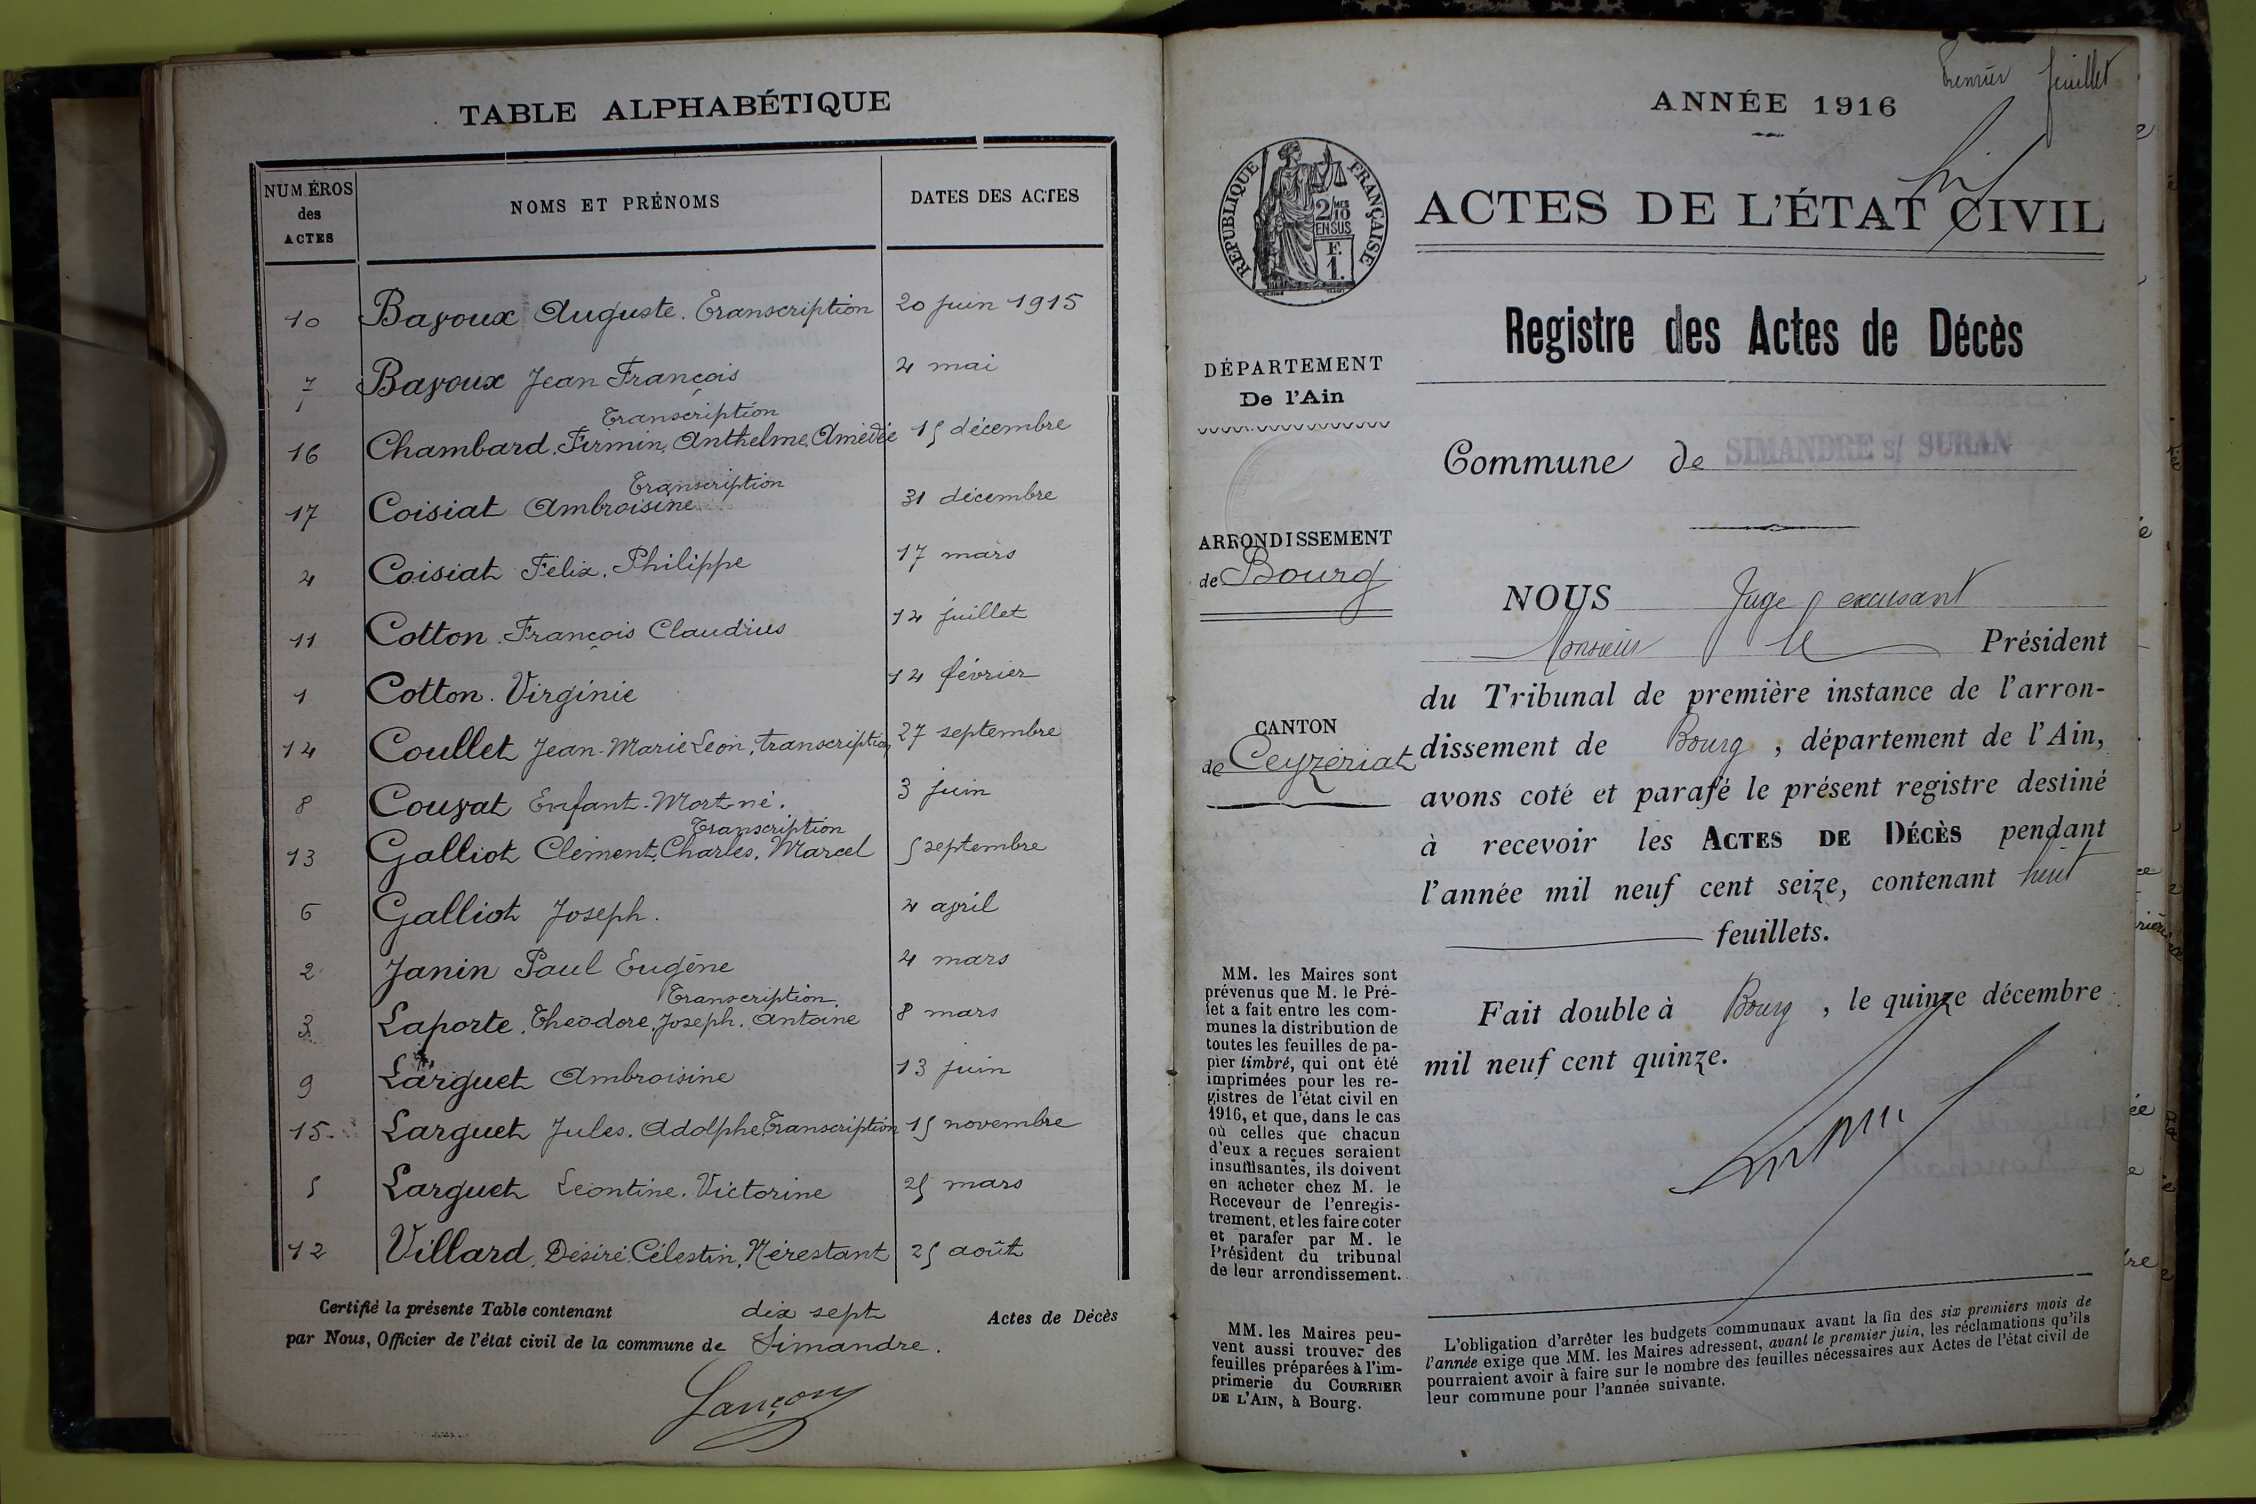 TABLE ALPHABÉTIQUE
NUMÉROS
des
ACTES
NOMS ET PRÉNOMS
DATES DES ACTES
10 Bayoux Auguste. Transcription 20 juin 1915
7 Bayoux Jean François 4 mai
Transcription
16 Chambard. Firmin, Anthelme, Amédée 15 décembre
Transcription
17 Coisiat Ambroisine 31 décembre
4 Coisiat Félix. Philippe 17 mars
11 Cotton. François Claudius 14 juillet
1 Cotton. Virginie 14 février
14 Coullet Jean-Marie Léon, transcription 27 septembre
8 Couvat Enfant-Mort-né. 3 juin
Transcription
13 Galliot Clément, Charles, Marcel 5 septembre
6 Galliot Joseph. 4 avril
2 Janin Paul Eugène 4 mars
Transcription.
3 Laporte. Théodore. Joseph. Antoine 8 mars
9 Larguet Ambroisine 13 juin
15. Larguet Jules. Adolphe. Transcription 15 novembre
5 Larguet Léontine. Victorine 25 mars
12 Villard, Désiré. Célestin, Nérestant 25 août
Certifié la présente Table contenant dix sept Actes de Décès
par Nous, Officier de l'état civil de la commune de Simandre.
Lançon
Premier feuillet
ANNÉE 1916
RÉPUBLIQUE FRANÇAISE
2/10
EN SUS
F.
1.
ACTES DE L'ÉTAT CIVIL
Registre des Actes de Décès
DÉPARTEMENT
De l'Ain
Commune de SIMANDRE s/ SURAN
ARRONDISSEMENT
de Bourg
CANTON
de Ceyzériat
NOUS Juge excusant
Monsieur le Président
du Tribunal de première instance de l'arron-
dissement de Bourg, département de l'Ain,
avons coté et parafé le présent registre destiné
à recevoir les ACTES DE DÉCÈS pendant
l'année mil neuf cent seize, contenant huit
feuillets.
Fait double à Bourg, le quinze décembre
mil neuf cent quinze.
MM. les Maires sont
prévenus que M. le Pré-
fet a fait entre les com-
munes la distribution de
toutes les feuilles de pa-
pier timbré, qui ont été
imprimées pour les re-
gistres de l'état civil en
1916, et que, dans le cas
où celles que chacun
d'eux a reçues seraient
insuffisantes, ils doivent
en acheter chez M. le
Receveur de l'enregis-
trement, et les faire coter
et parafer par M. le
Président du tribunal
de leur arrondissement.
MM. les Maires peu-
vent aussi trouver des
feuilles préparées à l'im-
primerie du COURRIER
DE L'AIN, à Bourg.
L'obligation d'arrêter les budgets communaux avant la fin des six premiers mois de
l'année exige que MM. les Maires adressent, avant le premier juin, les réclamations qu'ils
pourraient avoir à faire sur le nombre des feuilles nécessaires aux Actes de l'état civil de
leur commune pour l'année suivante.